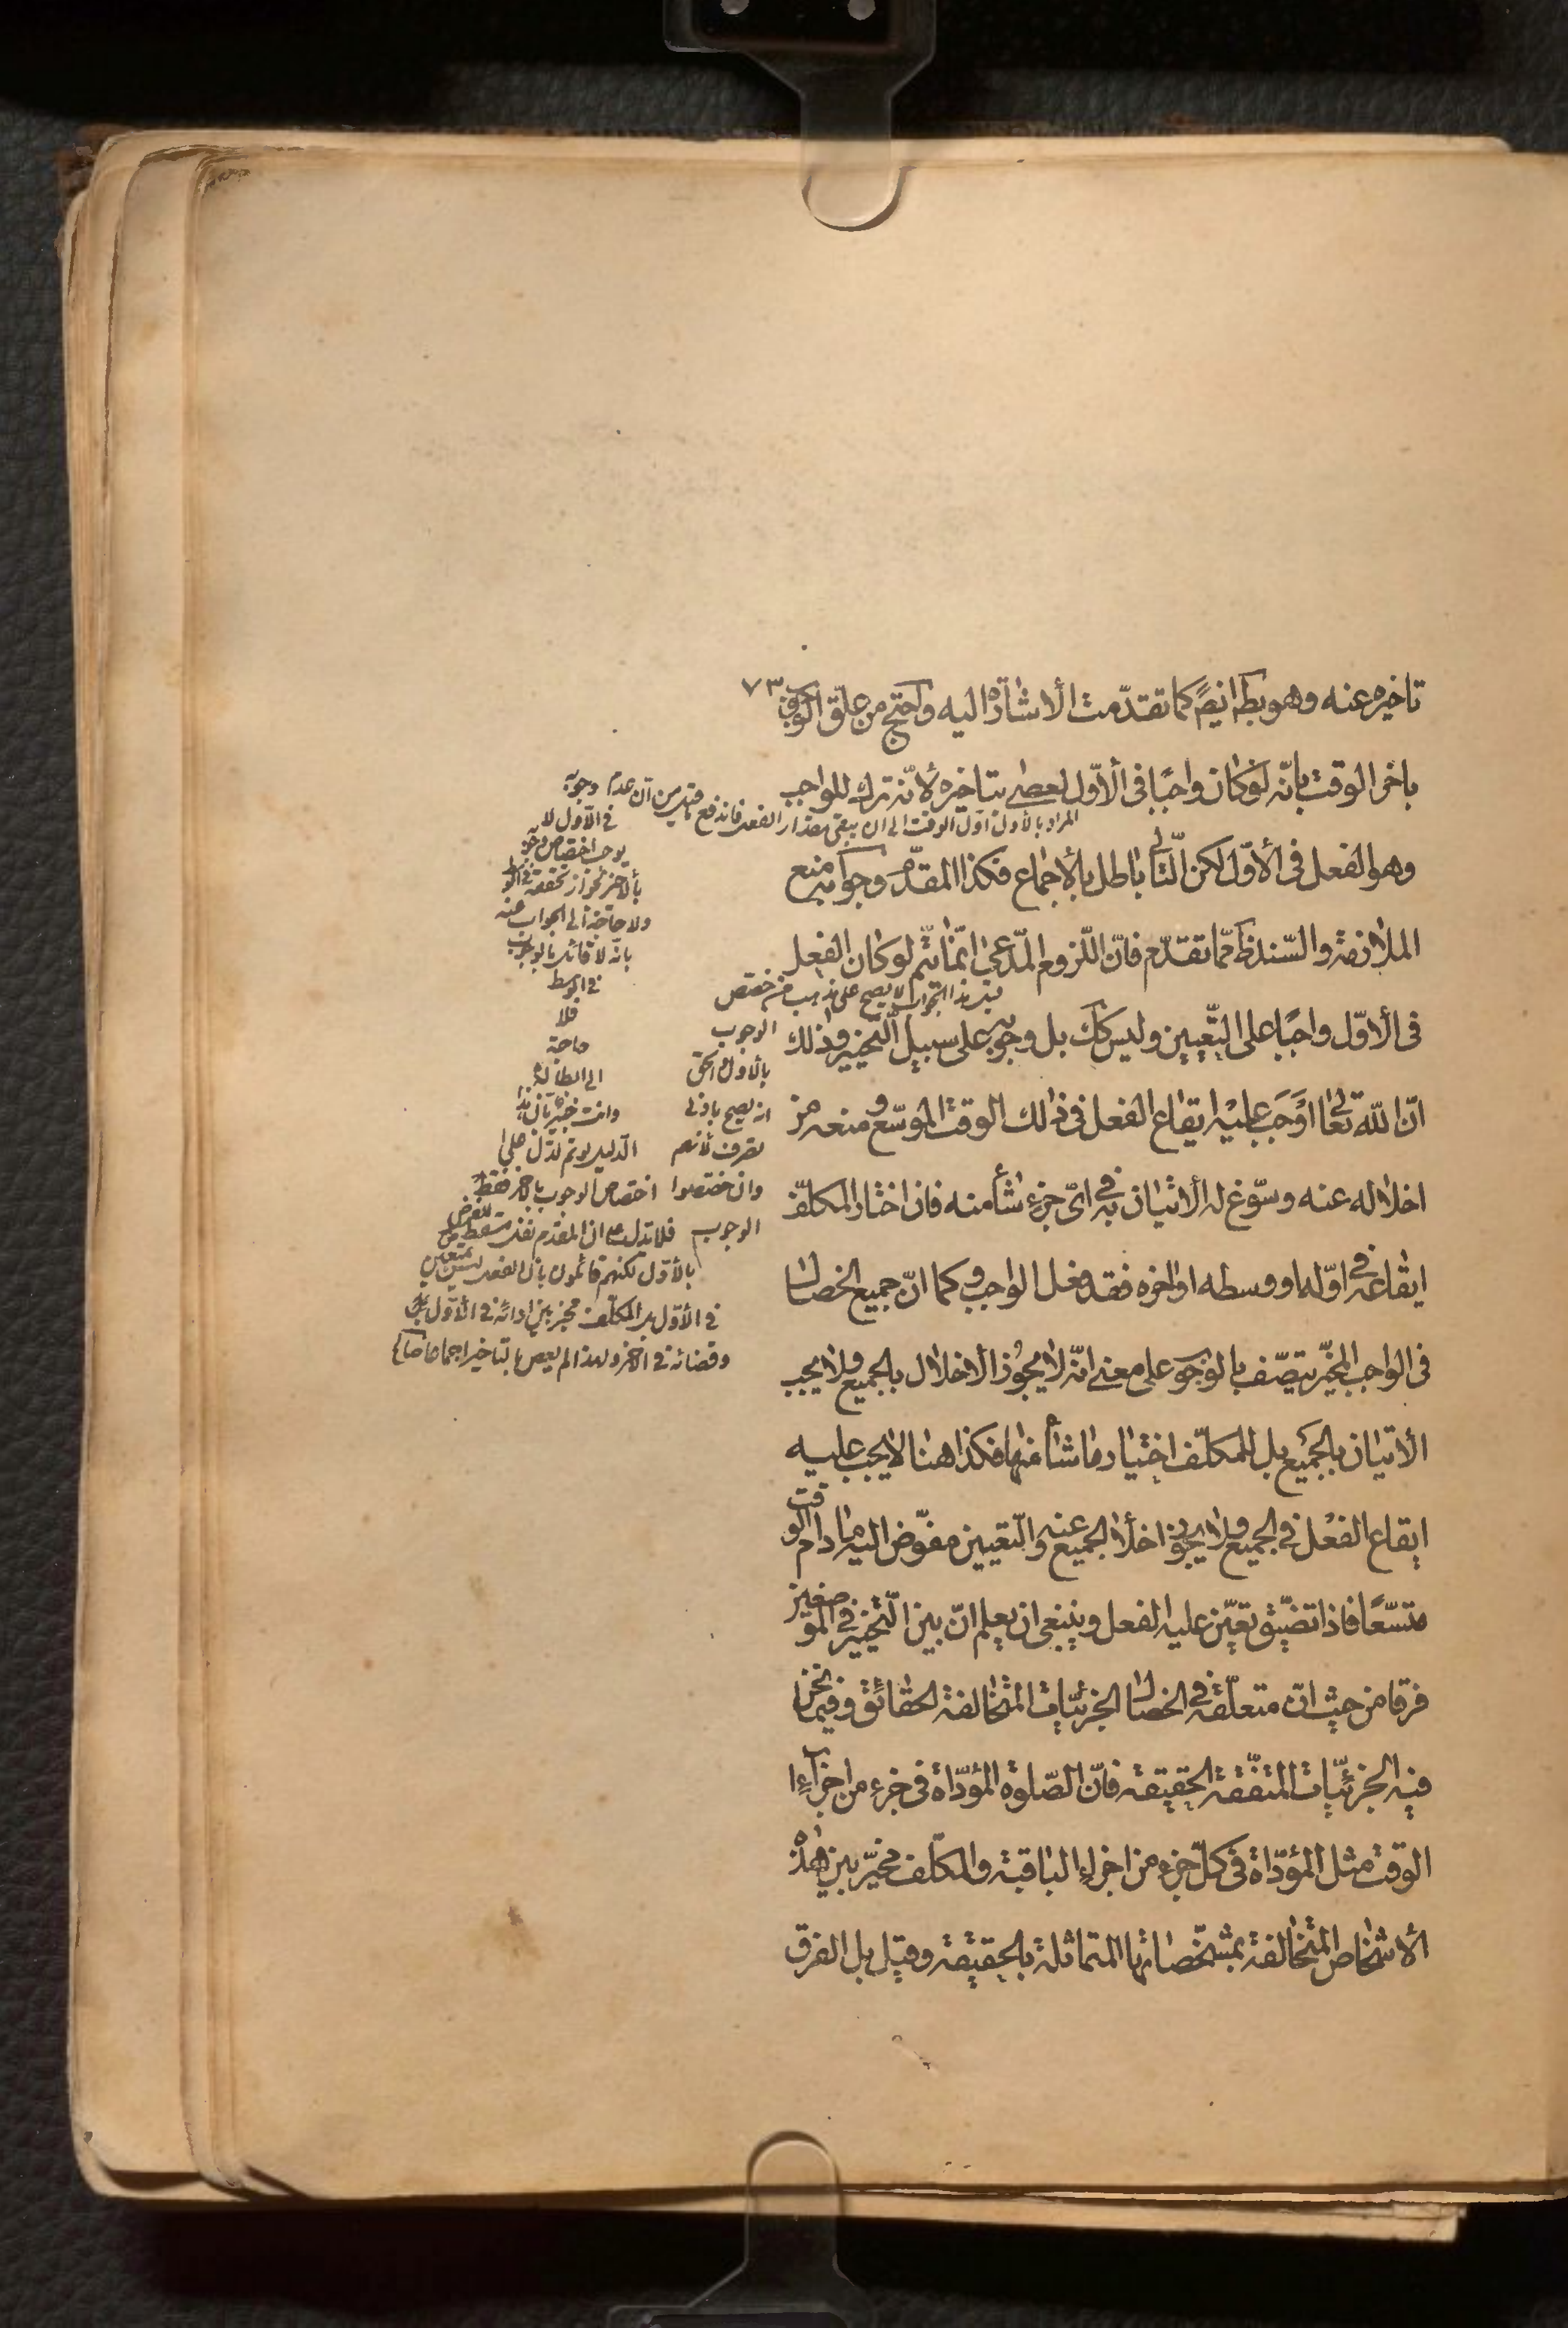 ٧٣
تاخيره عنه وهو بط ايضً كما تقدّمت الأشارة اليه واحتج من علّق الوجوب
باخر الوقت بانّه لو كان واجبًا فى الأوّل لعصى بتاخيره لأنّه ترك للواجب
وهو الفعل فى الأوّل لكن التّالى باطل بالأجماع فكذا المقدّم وجوابه منع
الملازمة والسّند ظ ممّا تقدّم فانّ اللّزوم المدّعى انّما يتمّ لو كان الفعل
فى الأوّل واجبًا على التّعيين وليس كك بل وجوبه على سبيل التّخيير وذلك
انّ اللّه تعالى اوجب عليه ايقاع الفعل فى ذلك الوقت الموسّع ومنعه من
اخلاله عنه وسوّغ له الأتيان به فى اىّ جزء شاء منه فان اختار المكلّف
ايقاعه فى اوّله او وسطه او اخره فقد فعل الواجب وكما انّ جميع الخصال
فى الواجب المخيّر يتصّف بالوجوب على معنى انّه لا يجوز الأخلال بالجميع ولا يجب
الأتيان بالجميع بل للمكلّف اختيار ما شاء منها فكذا هنا لا يجب عليه
ايقاع الفعل فى الجميع ولا يجوز اخلاء الجميع عنه والتّعيين مفوّض اليه ما دام الوقت
متسّعًا فاذا تضيّق تعيّن عليه الفعل وينبغى ان يعلم انّ بين التّخيير فى الموضعين
فرقا من حيث انّ متعلّقه فى الخصال الجزئيّات المتخالفة الحقائق وفيما نحن
فيه الجزئيّات المتفّقة الحقيقة فانّ الصّلوة المؤدّاة فى جزء من اجزاء
الوقت مثل المؤدّاة فى كلّ جزء من اجزاء الباقية والمكلّف مخيّر بين هذه
الأشخاص المتخالفة بمشخّصاتها المتماثلة بالحقيقة وقيل بل الفرق
المراد بالأول اوّل الوقت الى ان يبقى مقدار الفعل فاندفع ما قيل من انّ عدم وجوبه
فى الأوّل لا
يوجب اختصاص وجوبه
بالأخر لجواز تحققه فى الوسط
ولا حاجة الى الجواب عنه
بانّه لا قائل بالوجوب
فى الوسط
هذا الجواب لا يصح على مذهب من خصّص
الوجوب
بالأوّل والحق
انه يصح بادنى
تصرف لأنهم
وان خصّصوا
الوجوب
بالأوّل لكنهم قائلون بانّ الفعل ليس بمتعين
فى الأوّل بل المكلّف مخير بين ادائه فى الأوّل
وقضائه فى الأخر ولهذا لم يعص بالتاخير اجماعا
فلا
حاجة
الى
وانت خبير بانّ هذا
الدّليل لو تمّ لدلّ على
اختصاص الوجوب بالأخر فقط
فلا تدل على ان المقدم نفل يسقط به الفرض